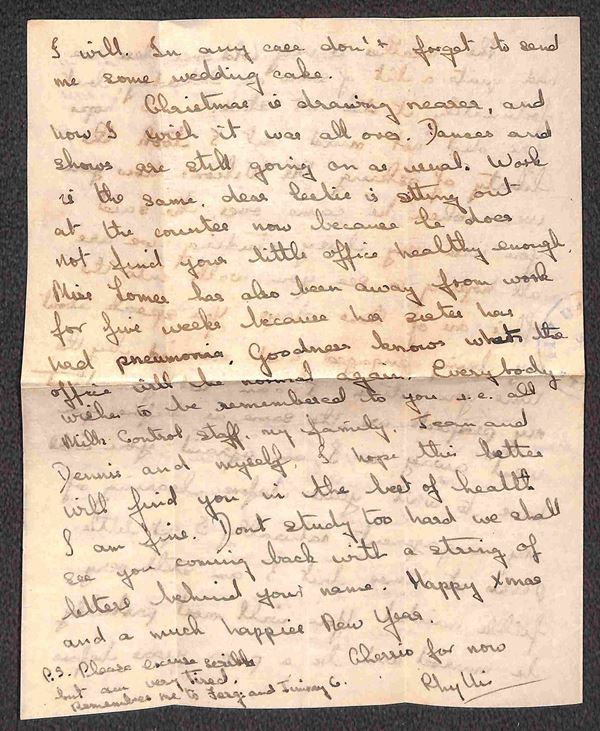 I will. In any case don't forget to send
me some wedding cake.
Christmas is drawing nearer, and
how I wish it was all over. Dances and
shows are still going on as usual. Work
is the same, dear Leslie is sitting out
at the counter now because he does
not find your little office healthy enough.
Miss Lomes has also been away from work
for five weeks because her sister has
had pneumonia. Goodness knows when the
office will be normal again. Everybody
wishes to be remembered to you i.e. all
Milk Control Staff, my family, Jean and
Dennis and myself. I hope this letter
will find you in the best of health
I am fine. Dont study too hard we shall
see you coming back with a string of
letters behind your name. Happy Xmas
and a much happier New Year.
Cheerio for now
Phyllis
P.S. Please excuse scribble
but am very tired.
Remember me to and Jimmy G.